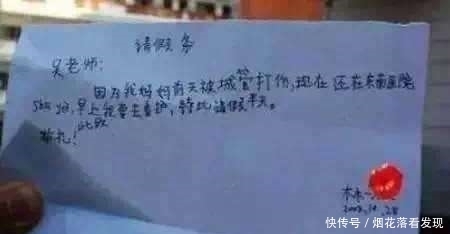 请假条
吴老师：
因为我妈妈前天被城管打伤，现在还在东莆医院
早上我要去看护，特此请假半天。
此致
敬礼！
林
28
快传号/烟花落看发现